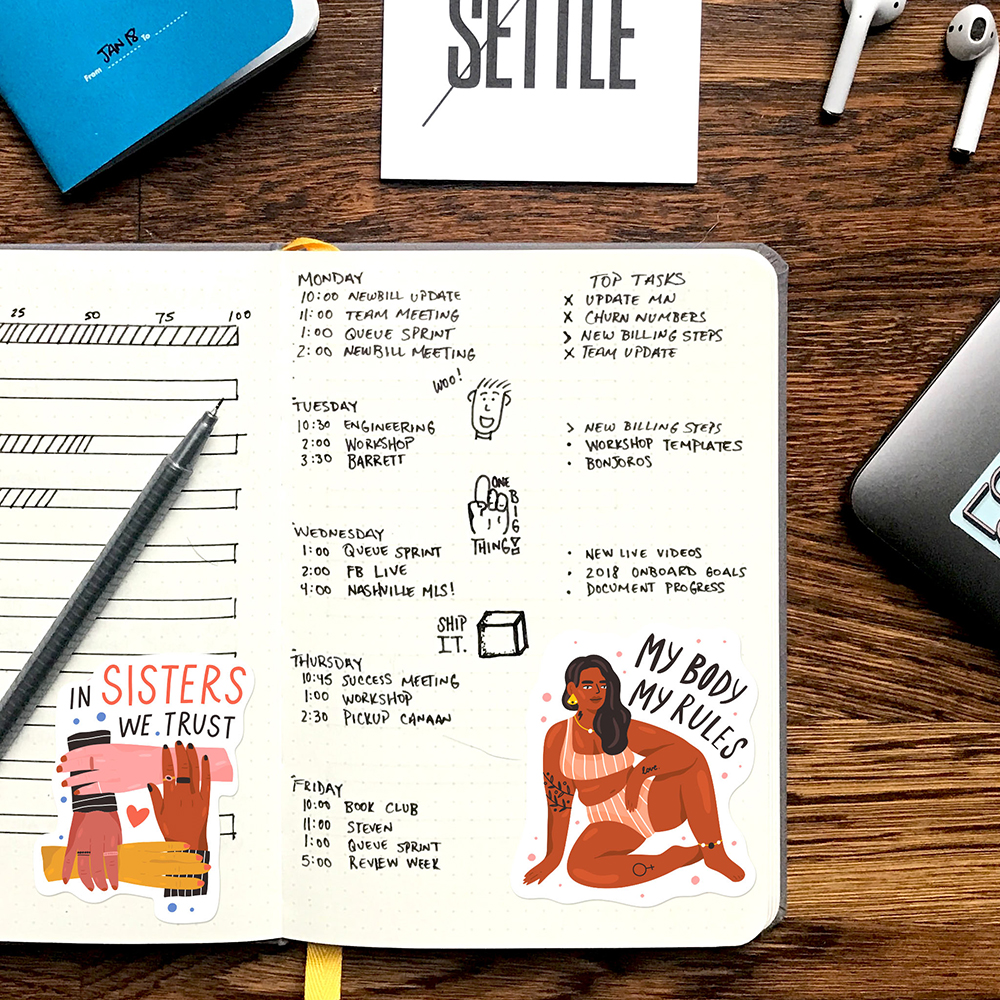 JAN 18
From To
SETTLE
25 50 75 100
MONDAY
10:00 NEWBILL UPDATE
11:00 TEAM MEETING
1:00 QUEUE SPRINT
2:00 NEWBILL MEETING
TOP TASKS
X UPDATE MN
X CHURN NUMBERS
> NEW BILLING STEPS
X TEAM UPDATE
WOO!
TUESDAY
10:30 ENGINEERING
2:00 WORKSHOP
3:30 BARRETT
> NEW BILLING STEPS
• WORKSHOP TEMPLATES
• BONJOROS
ONE
BIG
THING
WEDNESDAY
1:00 QUEUE SPRINT
2:00 FB LIVE
4:00 NASHVILLE MLS!
• NEW LIVE VIDEOS
• 2018 ONBOARD GOALS
• DOCUMENT PROGRESS
SHIP
IT.
THURSDAY
10:45 SUCCESS MEETING
1:00 WORKSHOP
2:30 PICKUP CANAAN
FRIDAY
10:00 BOOK CLUB
11:00 STEVEN
1:00 QUEUE SPRINT
5:00 REVIEW WEEK
IN SISTERS
WE TRUST
MY BODY
MY RULES
love